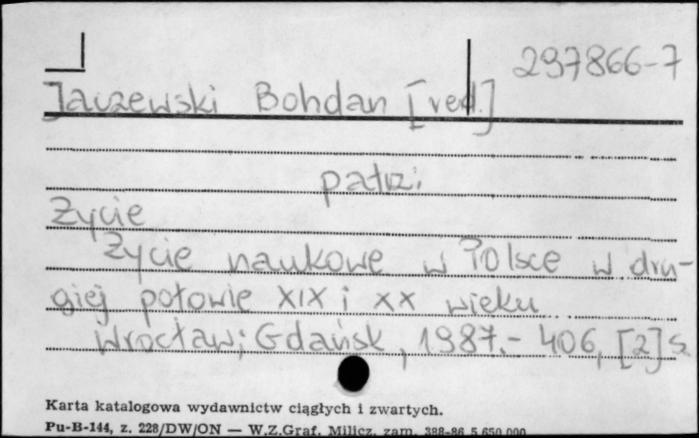 297866-7
Jaczewski Bohdan [red.]
patrz:
Życie
Życie naukowe w Polsce w dru-
giej połowie XIX i XX wieku
Wrocław; Gdańsk, 1987.- 406, [2] s.
Karta katalogowa wydawnictw ciągłych i zwartych.
Pu-B-144, z. 228/DW/ON — W.Z.Graf. Milicz, zam. 388-86 5.650.000